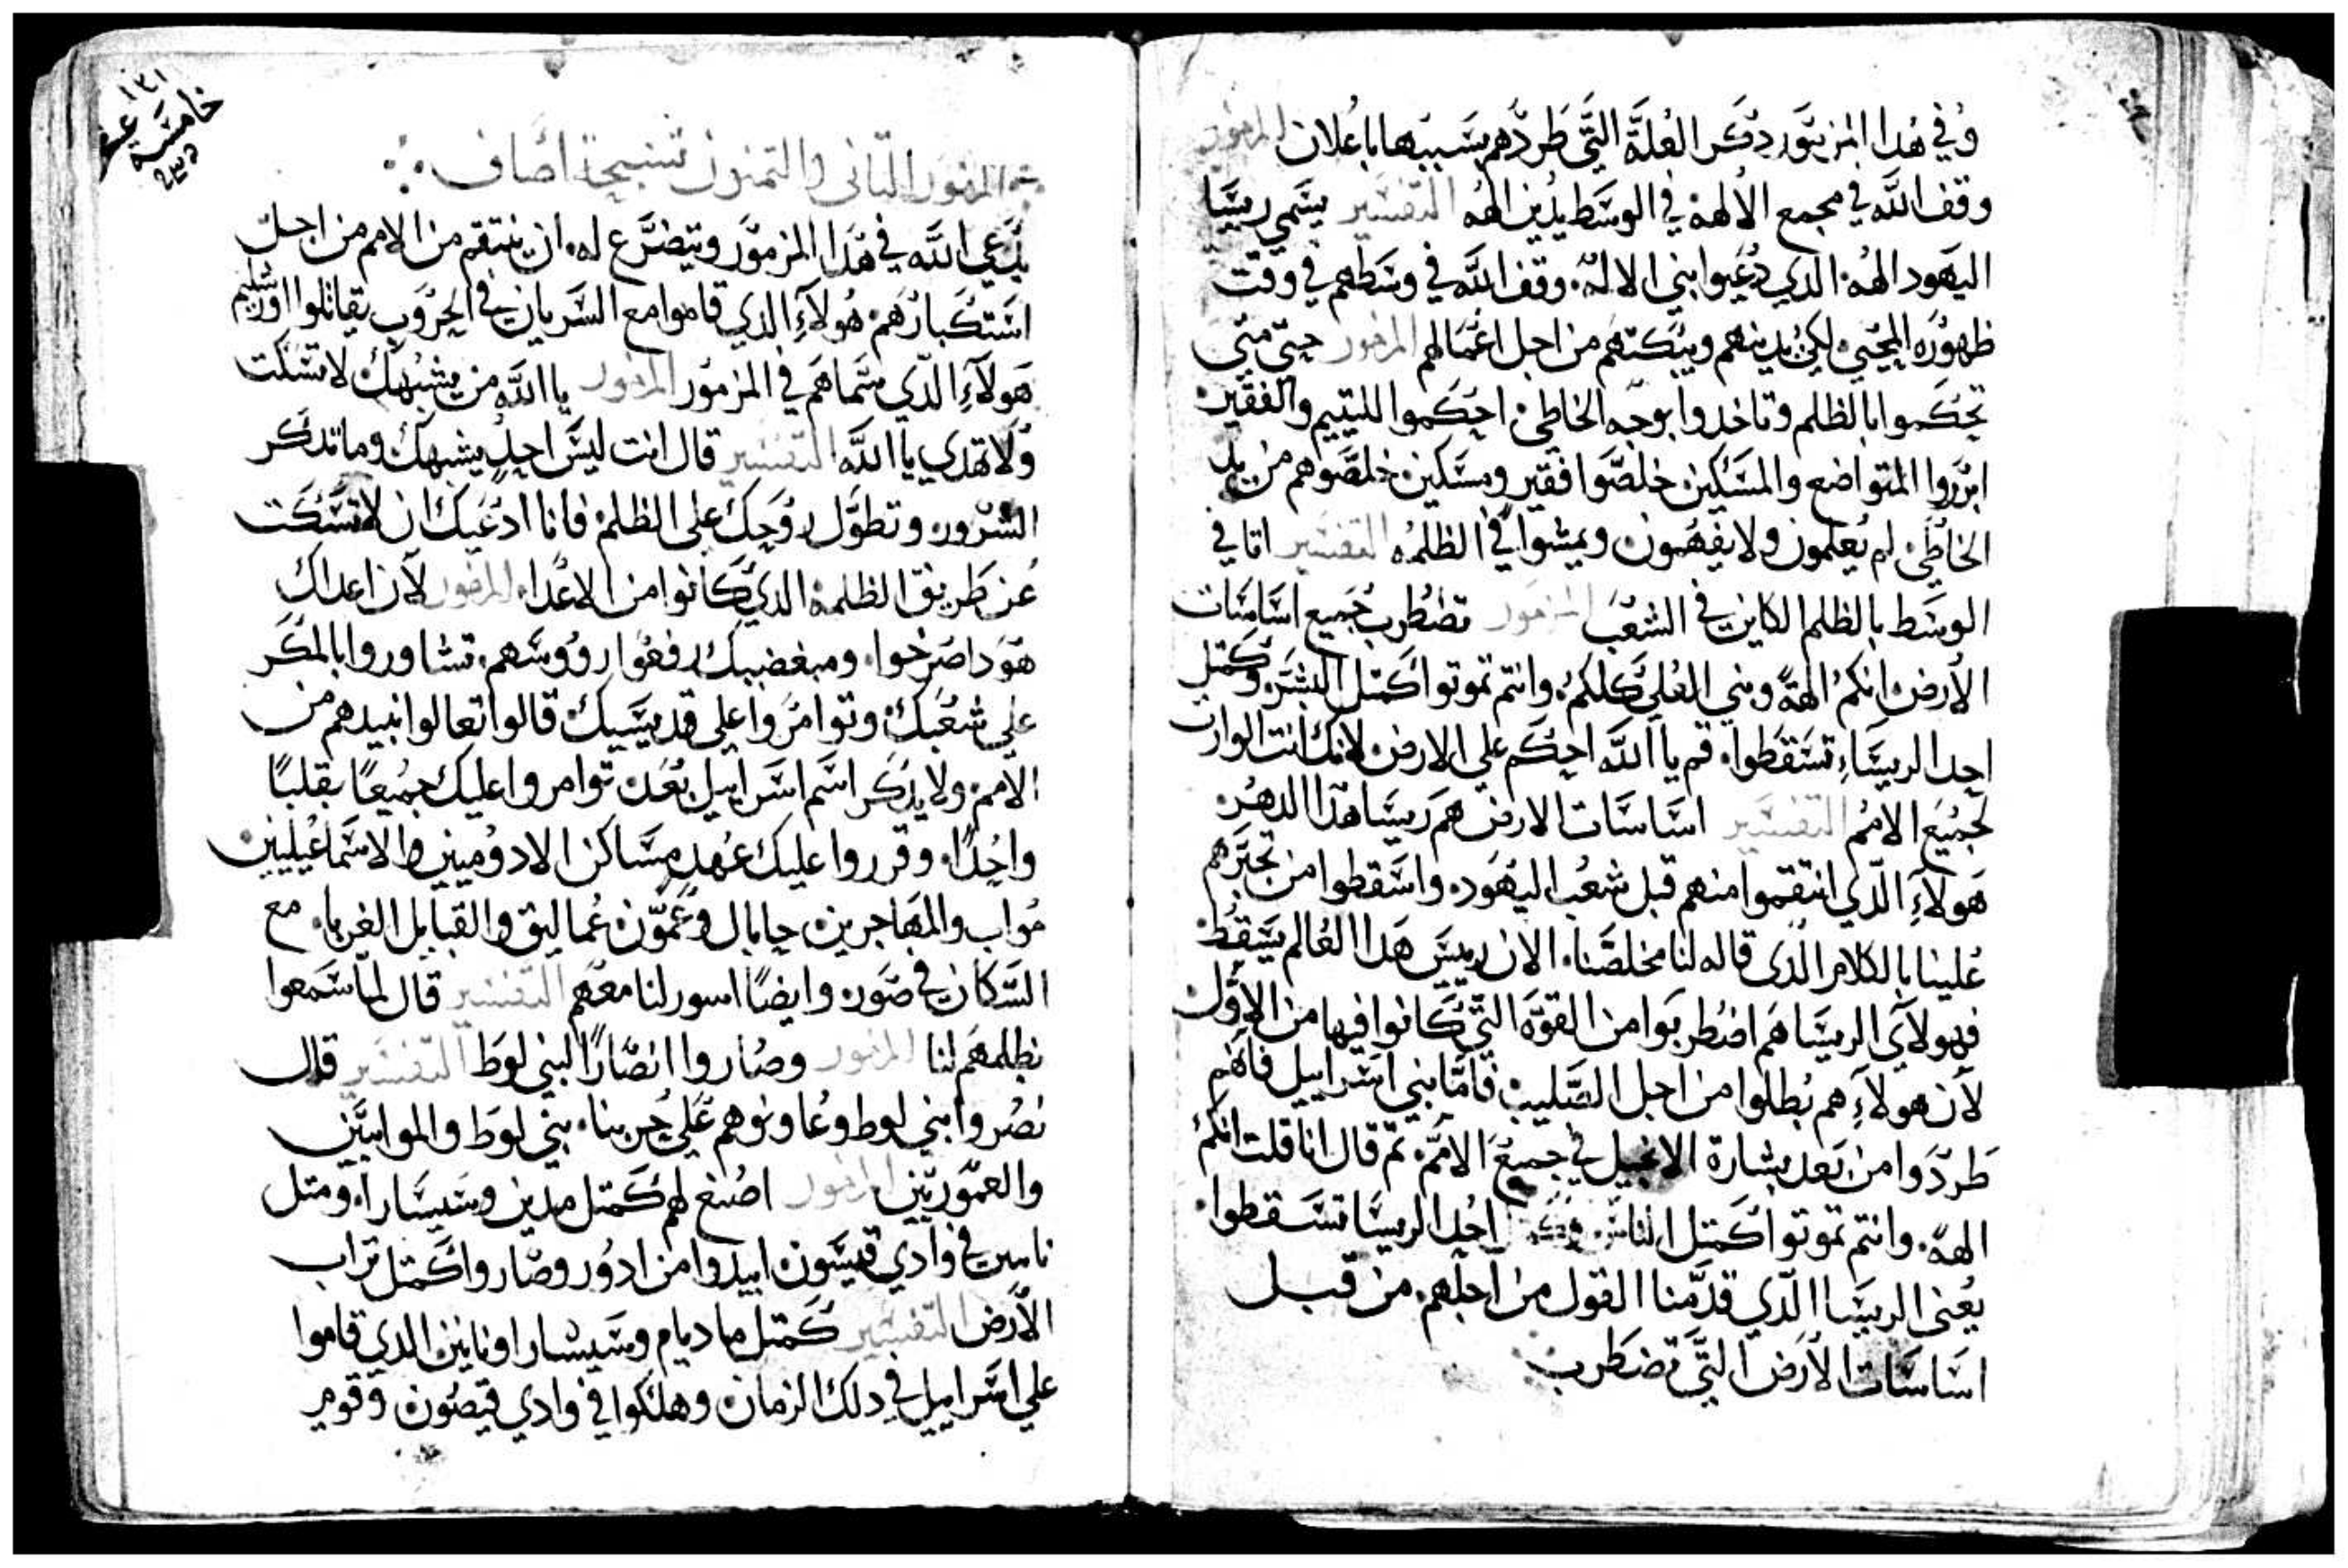 وفي هدا المزمور دكر العلة التي طردهم بسببها باعلان المزمور
وقف الله في مجمع الالهة في الوسط يدين الهه التفسير يسمي ريسا
اليهود الهه الدي دعيوا بني الاله. وقف الله في وسطهم في وقت
ظهوره المحيي لكي يدينهم ويبكتهم من اجل اعمالهم المزمور حتي متي
تحكموا بالظلم وتاخدوا بوجه الخاطي احكموا لليتيم والفقير
ابرروا المتواضع والمسكين خلصوا فقير ومسكين خلصوهم من يد
الخاطي لم يعلمون ولا يفهمون ويمشوا في الظلمه التفسير اقا في
الوسط بالظلم الكاين في الشعب المزمور تضطرب جميع اساسات
الارض انكم الهة وبني العلي كلكم وانتم تموتوا كمتل البشر وكمتل
احد الريساء تسقطوا قم يا الله احكم علي الارض لانك انت الوارت
لجميع الامم التفسير اساسات الارض هم ريسا هدا الدهر
هولاء الدي انتقموا منهم قبل شعب اليهود واسقطوا من تجبرهم
علينا بالكلام الدي قاله لنا مخلصنا الان رييس هدا العالم يسقط
فهولاي الريسا هم اضطربوا من القوة التي كانوا فيها من الاول
لان هولاء هم بطلوا من اجل الصليب فاما بني اسراييل فانهم
طردوا من بعد بشارة الانجيل في جميع الامم تم قال انا قلت انكم
الهة وانتم تموتوا كمتل الناس وكمتل احد الريسا تسقطوا
يعني الريسا الدي قدمنا القول من اجلهم من قبل
اساسات الارض التي تضطرب
١٣١
خامسة عشر
المزمور التاني والتمنون تسبحة اصاف
يدعي الله في هدا المزمور ويتضرع له ان ينتقم من الامم من اجل
استكبارهم هولاء الدي قاموا مع السريان في الحروب يقاتلوا اورشليم
هولاء الدي سماهم في المزمور المزمور يا الله من يشبهك لا تسكت
ولا تهدي يا الله التفسير قال انت ليس احد يشبهك وما تدكر
الشرور وتطول روحك علي الظلم فانا ادعيك ان لا تسكت
عن طريق الظلمة الدي كانوا من الاعدا المزمور لان اعداك
هودا صرخوا ومبغضييك رفعوا رووسهم تشاوروا بالمكر
علي شعبك وتوامروا علي قديسيك قالوا تعالوا نبيدهم من
الامم ولا يدكر اسم اسراييل بعد توامروا عليك جميعا بقلبا
واحدا وقرروا عليك عهد مساكن الادوميين والاسماعيليين
مواب والمهاجرين جابال وعمون عماليق والقبايل الغربا مع
السكان في صور وايضا اسور لنا معهم التفسير قال لما سمعوا
بظلمهم لنا المزمور وصاروا انصارا لبني لوط التفسير قال
نصروا بني لوط وعاونوهم علي حربنا بني لوط والموابيين
والعموريين المزمور اصنع لهم كمتل مدين وسيسارا ومتل
نابين في وادي قيسون ابيدوا من ادور وصاروا كمتل تراب
الارض التفسير كمتل ماديام وسيسارا ونابين الدي قاموا
علي اسراييل في دلك الزمان وهلكوا في وادي قيصون وقوم